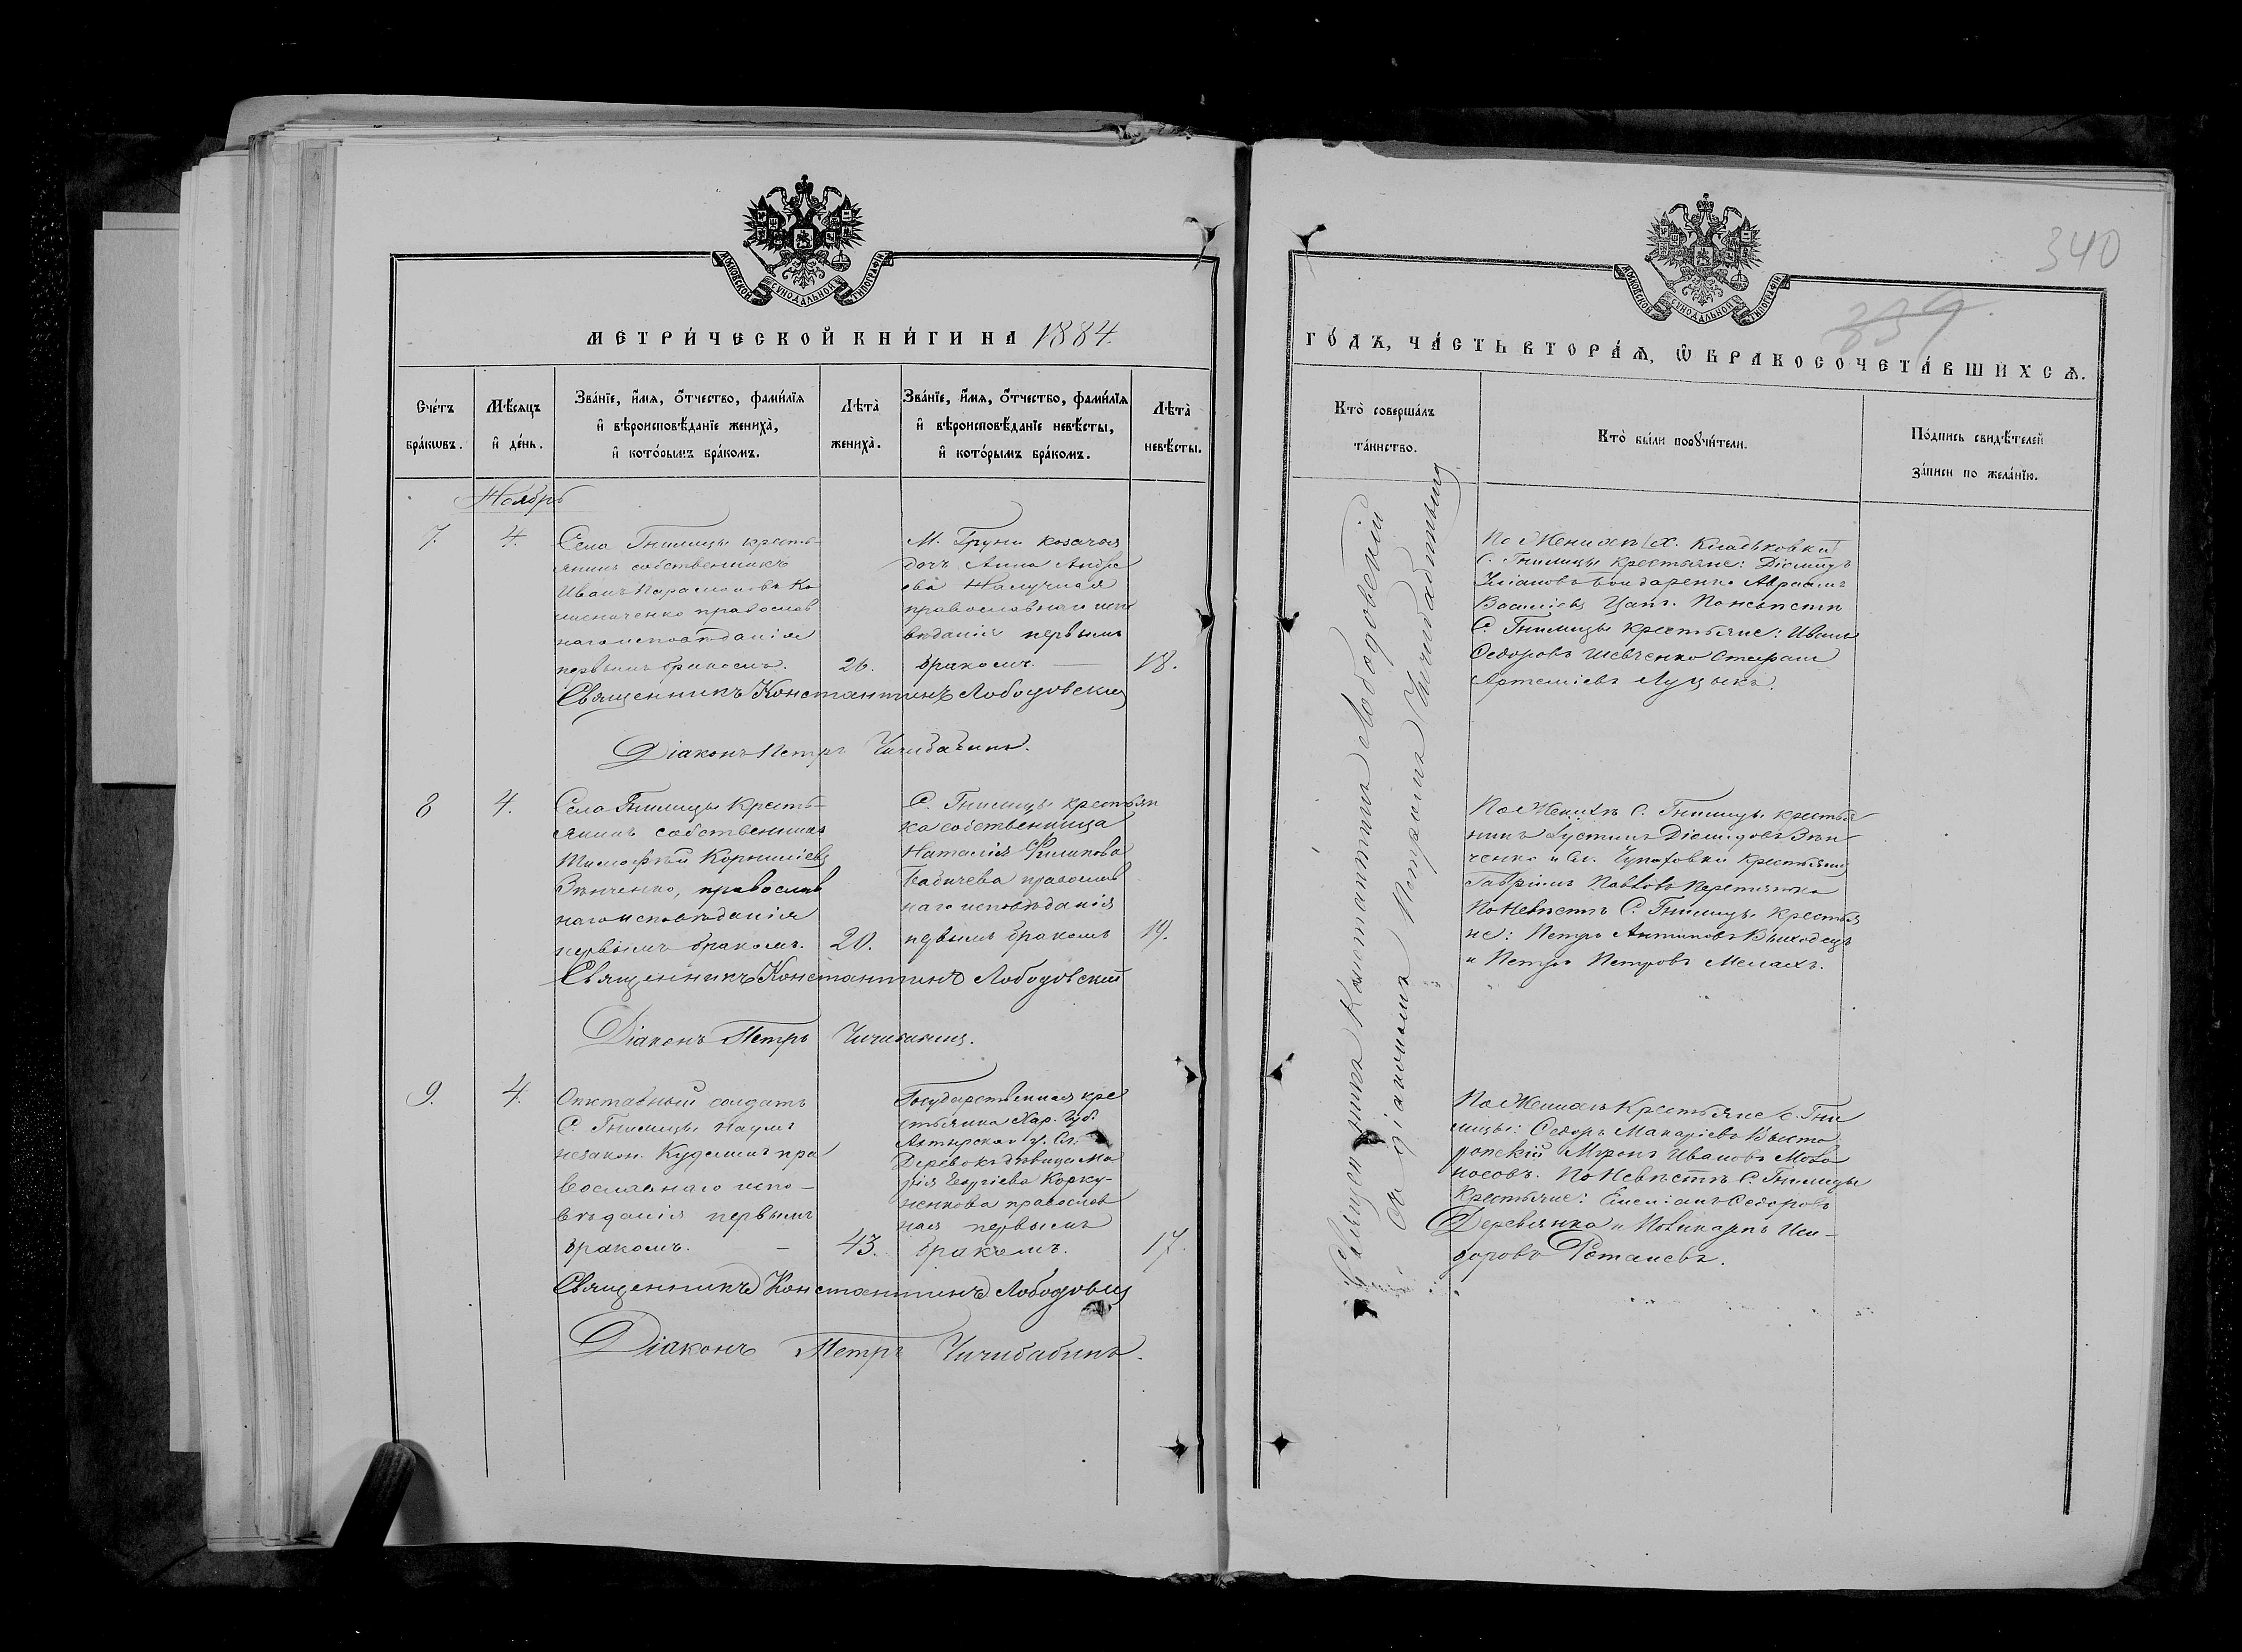 МОСКОВСКОЙ СѴНОДАЛЬНОЙ ТИПОГРАФІИ
МЕТРИ́ЧЕСКОЙ КНИ́ГИ НА 1884.
Сче́тъ бра́кѡвъ.
Мѣ́сяцъ и҆ де́нь.
Зва́нїе, и҆́мѧ, ѻ҆́тчество, фами́лїѧ
и҆ вѣроисповѣ́данїе жениха̀,
и҆ кото́рымъ бра́комъ.
Лѣта̀ жениха̀.
Зва́нїе, и҆́мѧ, ѻ҆́тчество, фами́лїѧ
и҆ вѣроисповѣ́данїе невѣ́сты,
и҆ кото́рымъ бра́комъ.
Лѣта̀ невѣ́сты.
Ноябрь
7.
4.
Села Гнилицы кресть-
янинъ собственникъ
Иванъ Парамоновъ Ко
православ
наго исповѣданія
первымъ бракомъ.
26.
М. Груни козачья
дочь Анна Андре
ева
православнаго испо
вѣданія первымъ
бракомъ.
18.
Священникъ Константинъ Лободовскій
Діаконъ Петръ Чичибабинъ.
8
4.
Села Гнилицы кресть-
янинъ собственникъ
Тимофѣй Корниліевъ
Зѣнченко, православ
наго исповѣданія
первымъ бракомъ.
20.
С. Гнилицы крестьян
ка собственница
Наталія Филипова
Бабичева православ
наго исповѣданія
первымъ бракомъ
19.
Священникъ Константинъ Лободовскій
Діаконъ Петръ Чичибабинъ.
9.
4.
Отставный солдатъ
С. Гнилицы Наумъ
незакон. пра
вославнаго испо-
вѣданія первымъ
бракомъ.
43.
Государственная кре
стьянка Хар. Губ.
Ахтырскаго у. Сл.
дѣвица Ма
рія Георгіева Корку-
ненкова православ
ная первымъ
бракомъ.
17.
Священникъ Константинъ Лободовскій
Діаконъ Петръ Чичибабинъ.
340
339
МОСКОВСКОЙ СѴНОДАЛЬНОЙ ТИПОГРАФІИ
ГО́ДЪ, ЧА́СТЬ ВТОРА́Ѧ, Ѡ҆ БРАКОСОЧЕТА́ВШИХСѦ.
Кто̀ соверша́лъ
та́инство.
Кто̀ бы́ли порꙋчи́тели.
По́дпись свидѣ́телей
за́писи по жела́нїю.
Священникъ Константинъ Лободовскій
съ діакономъ Петромъ Чичибабинымъ
По Женихѣ х. Кладьковки
С. Гнилицы крестьяне: Діомидъ
Бондаренко Авраамъ
Васильевъ Цапъ. По невѣстѣ
С. Гнилицы крестьяне: Иванъ
Ѳедоровъ Шевченко Стефанъ
Артеміевъ Луцыкъ.
По Женихѣ С. Гнилицы крестья
нинъ Іустинъ Діомидовъ Зѣн-
ченко и Сл. Чупаховки крестьянинъ
Гавріилъ Павловъ Перетятко
По Невѣстѣ С. Гнилицы крестья
не: Петръ Антиповъ Выходецъ
и Петръ Петровъ
По Женихѣ Крестьяне с. Гни
лицы: Ѳедоръ Макаріевъ Высто
ропскій Миронъ Ивановъ
По Невѣстѣ С. Гнилицы
Крестьяне: Емеліанъ Ѳедоровъ
Деревянка и Поликарпъ Иси-
доровъ